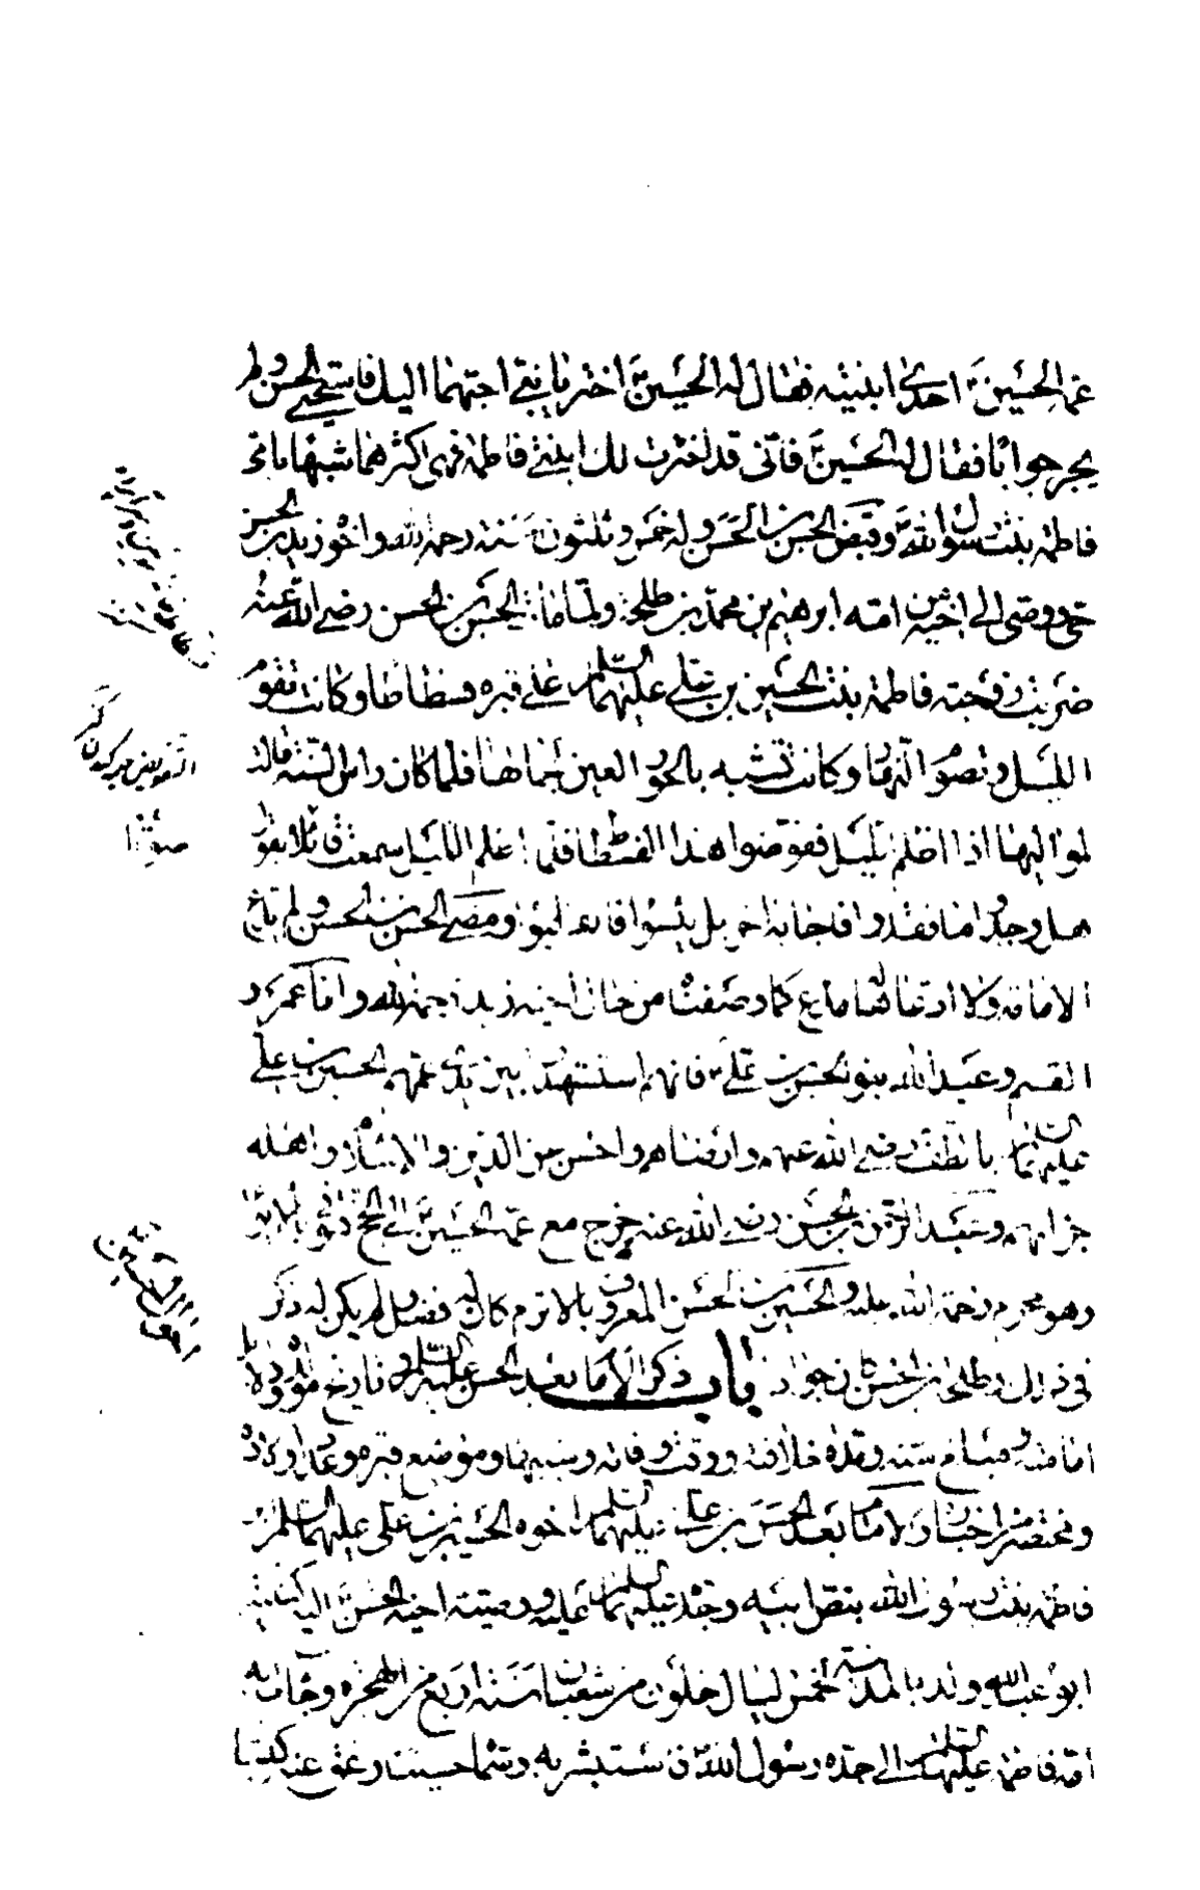 عمه الحسين ع احدى ابنتيه فقال له الحسين ع اختر يا بني احبهما اليك فاستحيى الحسن ولم
يحر جوابا فقال له الحسين ع فاني قد اخترت لك ابنتي فاطمة فهي اكثرهما شبها بامي
فاطمة بنت رسول الله ص وقبض الحسن بن الحسن وله خمس وثلثون سنة رحمه الله واخوه زيد بن الحسن
حي ووصى الى اخيه من امه ابرهيم بن محمد بن طلحة ولما مات الحسن بن الحسن رضي الله عنه
ضربت زوجته فاطمة بنت الحسين بن علي عليهما السلم على قبره فسطاطا وكانت تقوم
الليل وتصوم النهار وكانت تشبه بالحور العين لجمالها فلما كان راس السنة قالت
لمواليها اذا اظلم الليل فقوضوا هذا الفسطاط فلما اظلم الليل سمعت قائلا يقول
هل وجدوا ما فقدوا فاجابه اخر بل يئسوا فانقلبوا ومضى الحسن بن الحسن ولم يدع
الامامة ولا ادعاها له مدع كما وصفنا من حال اخيه زيد رحمه الله واما عمرو و
القسم وعبد الله بنو الحسن بن علي ع فانهم استشهدوا بين يدي عمهم الحسين بن علي
عليهما السلم بالطف رضي الله عنهم وارضاهم واحسن عن الدين والاسلام واهله
جزاءهم وعبد الرحمن بن الحسن رضي الله عنه خرج مع عمه الحسين ع الى الحج فتوفي بالابواء
وهو محرم رحمة الله عليه والحسين بن الحسن المعروف بالاثرم كان له فضل ولم يكن له ذكر
في ذلك وطلحة بن الحسن كان جوادا باب ذكر الامام بعد الحسن عليه السلم وتاريخ مولده ودلائل
امامته ومبلغ سنه ومدة خلافته ووقت وفاته وسببها وموضع قبره وعدد اولاده
ومختصر من اخباره والامام بعد الحسن بن علي عليهما السلم اخوه الحسين بن علي عليهما السلم بن
فاطمة بنت رسول الله بنص ابيه وجده عليهما السلم عليه ووصية اخيه الحسن ع اليه كنيته
ابو عبد الله ولد بالمدينة لخمس ليال خلون من شعبان سنة اربع من الهجرة وجاءت به
امه فاطمة عليهما السلم الى جده رسول الله ص فاستبشر به وسماه حسينا وعق عنه كبشا